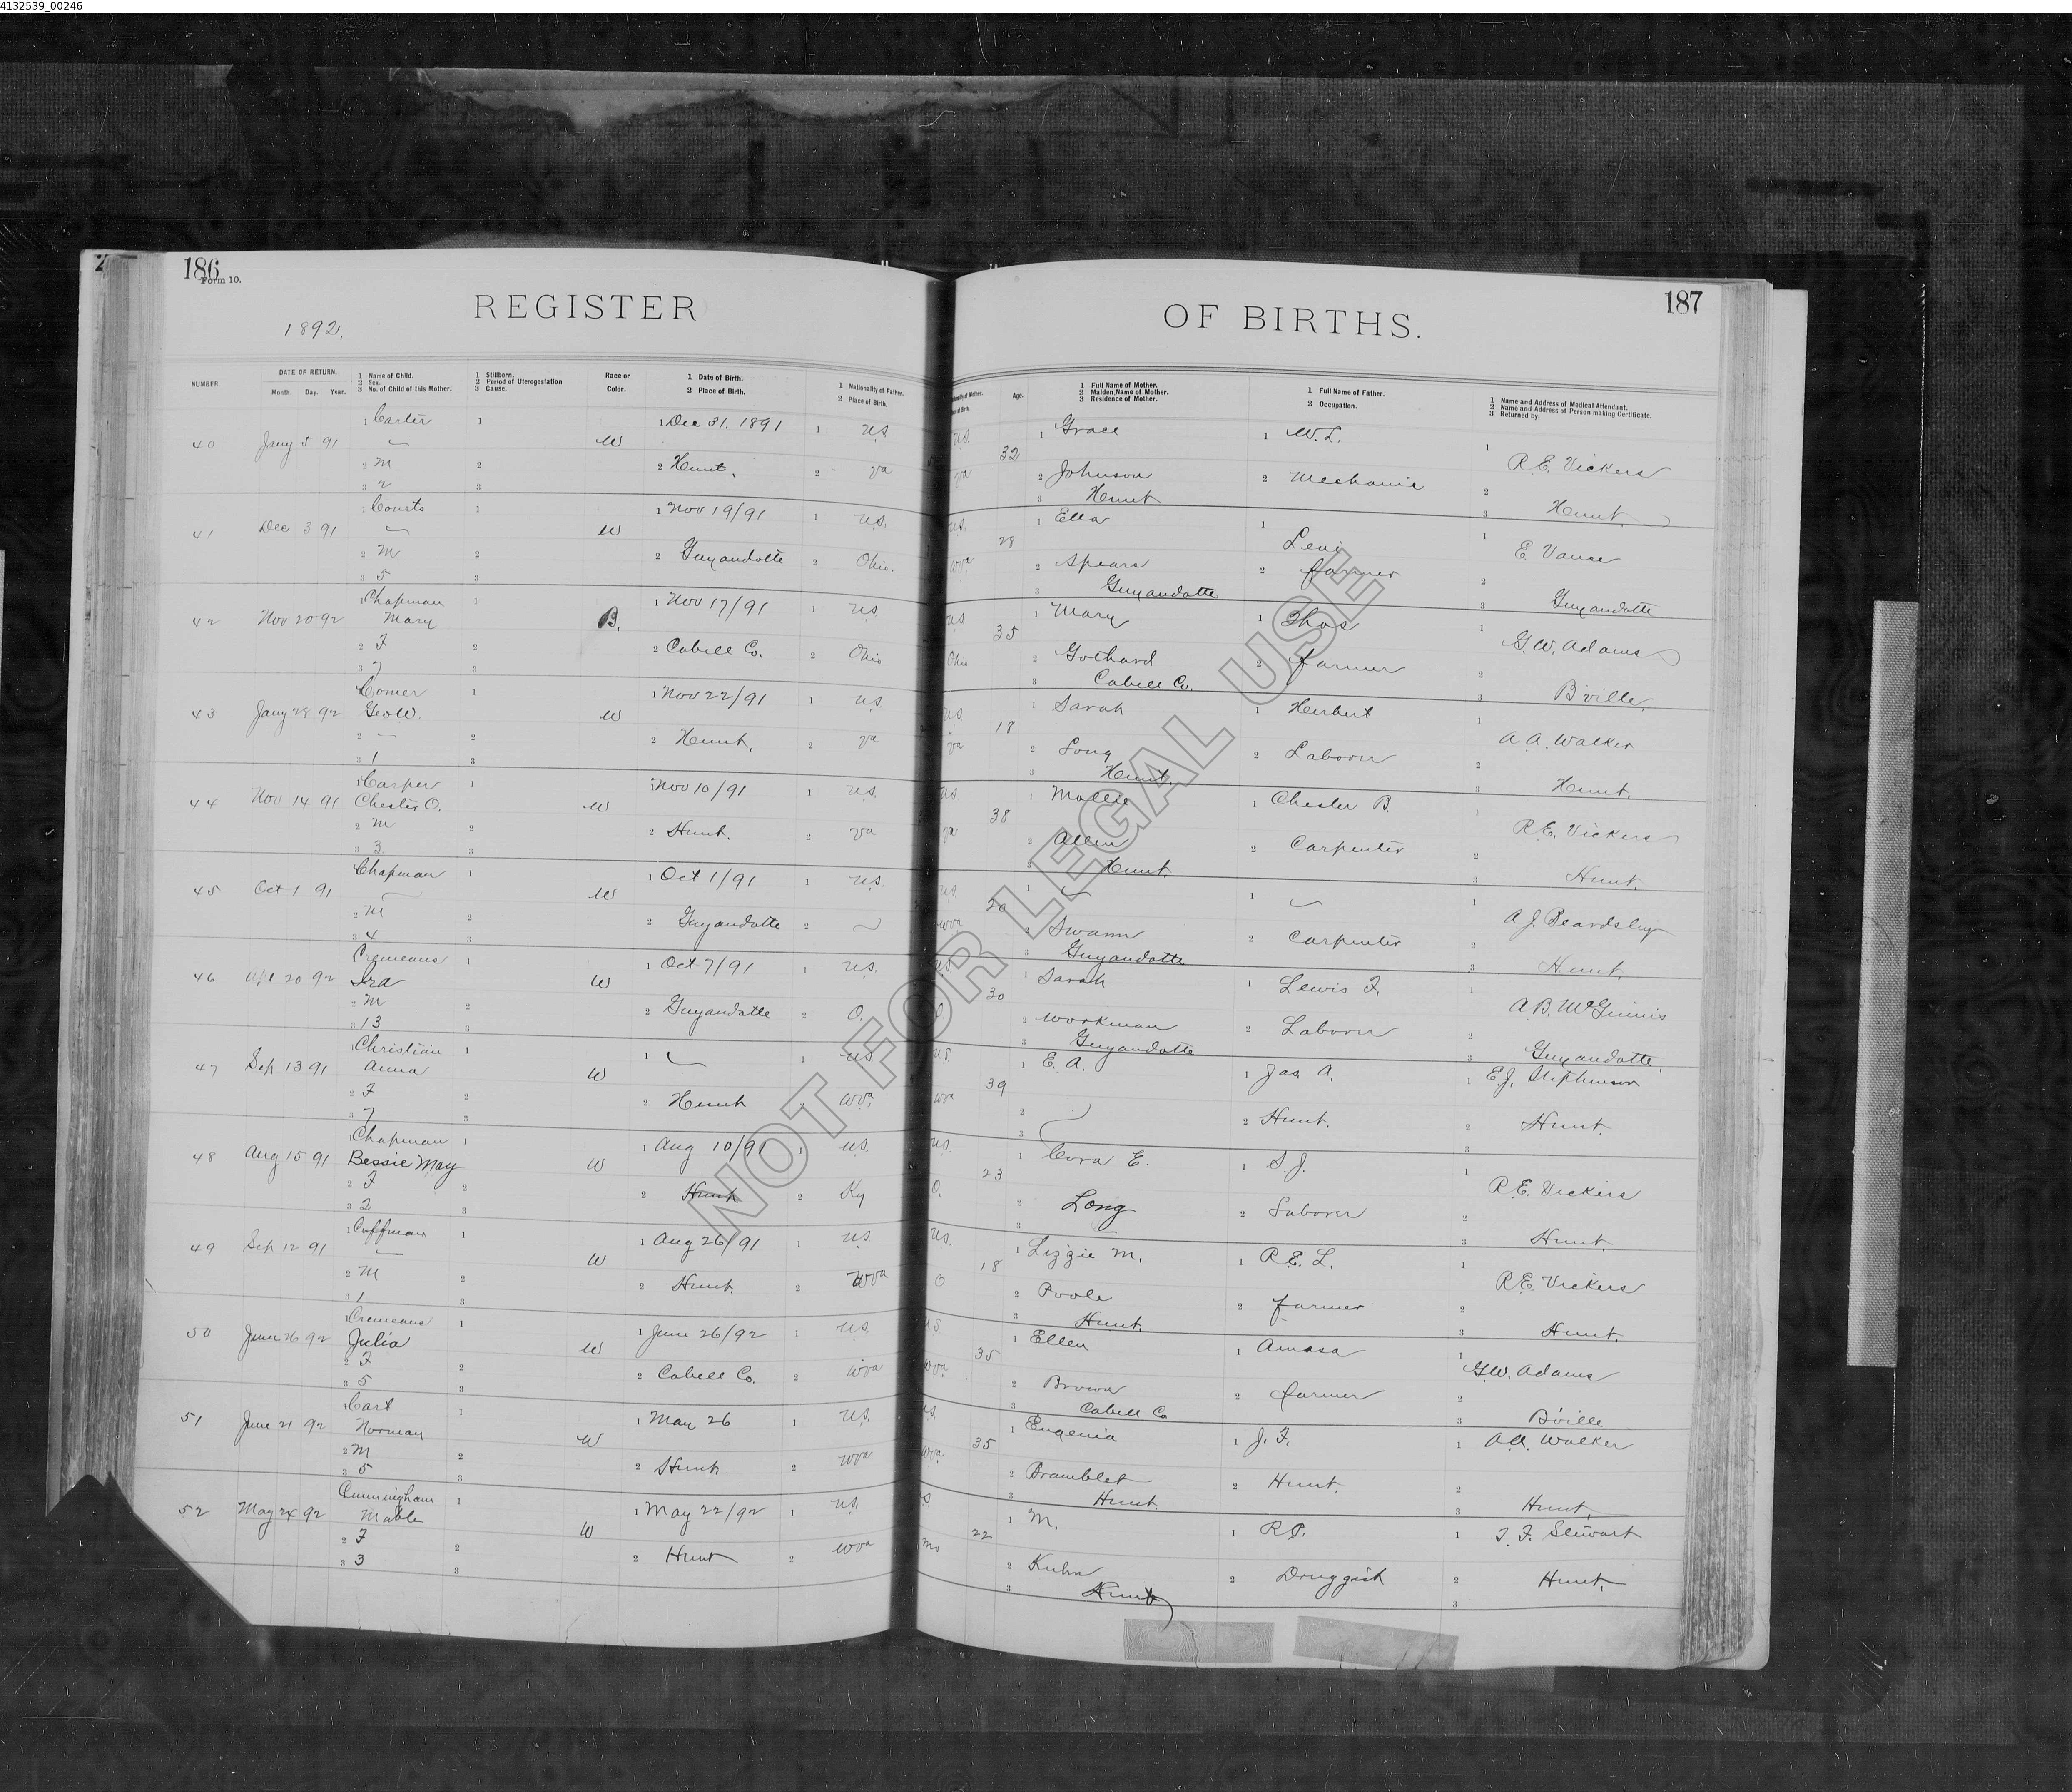 4132539_00246
186
Form 10.
REGISTER
1892.
NUMBER
DATE OF RETURN.
Month. Day. Year.
1 Name of Child.
2 Sex.
3 No. of Child of this Mother.
1 Stillborn.
2 Period of Uterogestation
3 Cause.
Race or
Color.
1 Date of Birth.
2 Place of Birth.
1 Nationality of Father.
2 Place of Birth.
187
OF BIRTHS.
Age.
1 Full Name of Mother.
2 Maiden Name of Mother.
3 Residence of Mother.
1 Full Name of Father.
2 Occupation.
1 Name and Address of Medical Attendant.
2 Name and Address of Person making Certificate.
3 Returned by.
40 Jany 5 91 1 Carter 1 W 1 Dec 31. 1891 1 U.S. U.S. 32 1 Grace 1 W. L. 1 R.E. Vickers
2 M 2 2 Hunt. 2 Va Va 2 Johnson 2 Mechanic 2
3 2 3 3 Hunt 3 Hunt.
41 Dec 3 91 1 Courts 1 W 1 Nov 19/91 1 U.S. U.S. 28 1 Ella 1 Levi 1 E Vance
2 M 2 2 Guyandotte 2 Ohio. Wva 2 Spears 2 farmer 2
3 5 3 3 Guyandotte 3 Guyandotte
42 Nov 20 92 1 Chapman 1 B. 1 Nov 17/91 1 U.S. U.S 35 1 Mary 1 Thos 1 G.W. Adams
Mary
2 F 2 2 Cabell Co. 2 Ohio Ohio 2 Gothard 2 farmer 2
3 7 3 3 Cabell Co. 3 B'ville,
43 Jany 28 92 1 Comer 1 W 1 Nov 22/91 1 U.S. U.S 18 1 Sarah 1 Herbert 1 A.A. Walker
Geo W.
2 2 2 Hunt. 2 Va Va 2 Long 2 Laborer 2
3 1 3 3 Hunt. 3 Hunt.
44 Nov 14 91 1 Carper 1 W 1 Nov 10/91 1 U.S. U.S. 38 1 Mollie 1 Chester B. 1 R.E. Vickers
Chester O.
2 M 2 2 Hunt. 2 Va Va 2 Allen 2 Carpenter 2
3 3 3 3 Hunt. 3 Hunt.
45 Oct 1 91 Chapman 1 W 1 Oct 1/91 1 U.S. U.S. 20 1 1 1 A.J. Beardsley
2 M 2 2 Guyandotte 2 Wva 2 Swann 2 Carpenter 2
3 4 3 3 Guyandotte 3 Hunt.
46 Apl 20 92 Cremeans 1 W 1 Oct 7/91 1 U.S. U.S 30 1 Sarah 1 Lewis F. 1 A.B. McGinnis
Ira
2 M 2 2 Guyandotte 2 O. O. 2 Workman 2 Laborer 2
3 13 3 3 Guyandotte 3 Guyandotte.
47 Sep 13 91 1 Christian 1 W 1 1 U.S U.S. 39 1 E. A. 1 Jas. A. 1 E.J. Stephenson
Anna
2 F 2 2 Hunt 2 Wva. Wva 2 2 Hunt. 2 Hunt.
3 7 3 3 3
48 Aug 15 91 1 Chapman 1 W 1 Aug 10/91 1 U.S. U.S. 23 1 Cora E. 1 S. J. 1 R.E. Vickers
Bessie May
2 F 2 2 Hunt 2 Ky O. 2 Long 2 Laborer 2
3 2 3 3 3 Hunt.
49 Sep 12 91 1 Coffman 1 W 1 Aug 26/91 1 U.S. U.S. 18 1 Lizzie M. 1 R.E. L. 1 R.E. Vickers
2 M 2 2 Hunt. 2 Wva O 2 Poole 2 farmer 2
3 1 3 3 Hunt. 3 Hunt.
50 June 26 92 1 Cremeans 1 W 1 June 26/92 1 U.S. U.S. 35 1 Ellen 1 Amasa 1 G.W. Adams
Julia
2 F 2 2 Cabell Co. 2 Wva Wva. 2 Brown 2 farmer 2
3 5 3 3 Cabell Co 3 B'ville
51 June 21 92 1 Cart 1 W 1 May 26 1 U.S. U.S. 35 1 Eugenia 1 J. F. 1 A.A. Walker
Norman
2 M 2 2 Hunt 2 Wva Wva. 2 Bramblet 2 Hunt. 2
3 5 3 3 Hunt. 3 Hunt.
52 May 24 92 Cunningham 1 W 1 May 22/92 1 U.S. U.S. 22 1 M. 1 R.P. 1 J. F. Stewart
Mable
2 F 2 2 Hunt 2 Wva Mo 2 Kuhn 2 Druggist 2 Hunt.
3 3 3 3 Hunt 3
NOT FOR LEGAL USE